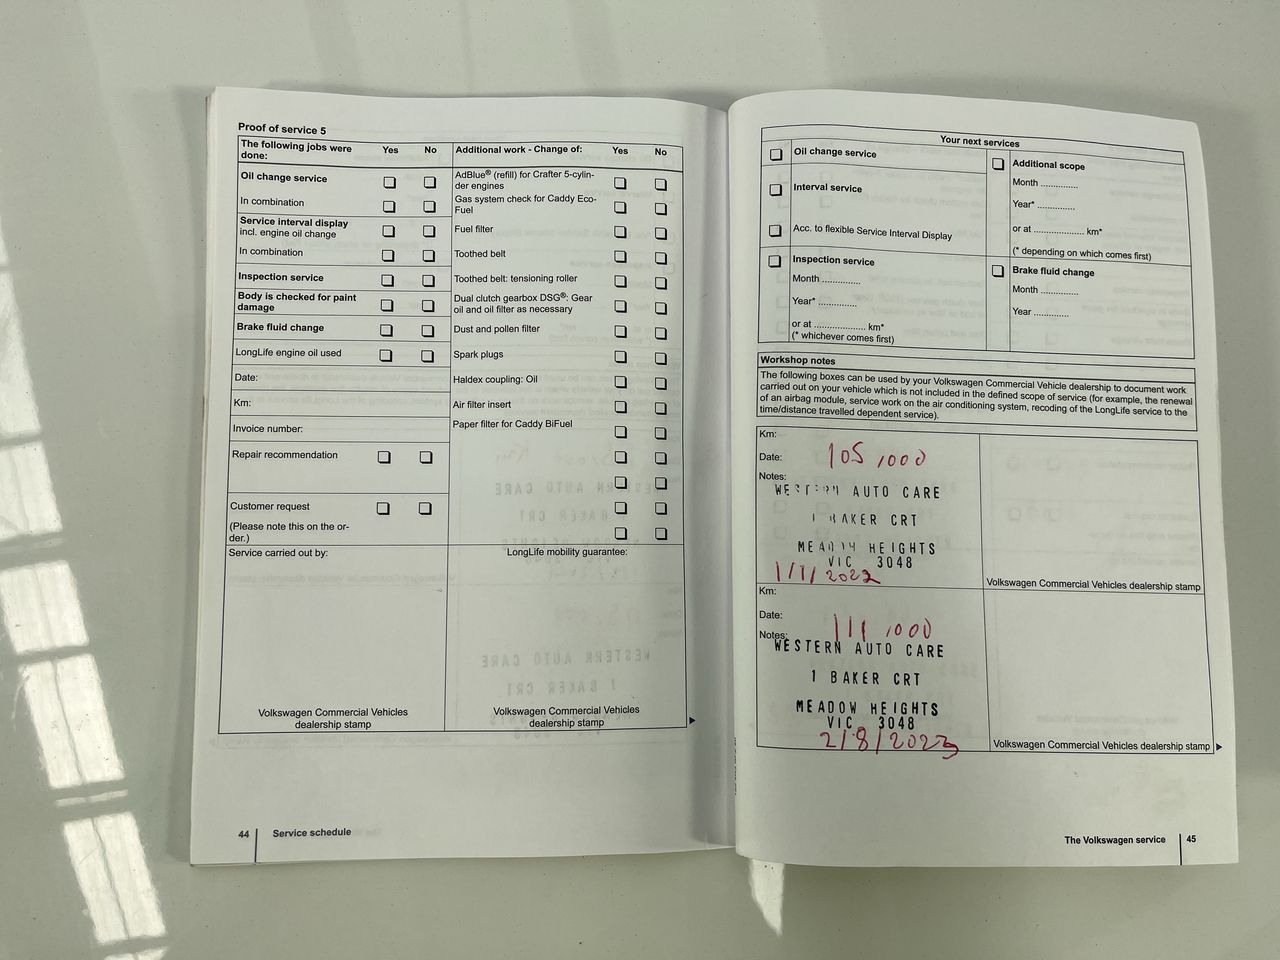 Proof of service 5
The following jobs were done:
Yes
No
Oil change service
In combination
Service interval display
incl. engine oil change
In combination
Inspection service
Body is checked for paint
damage
Brake fluid change
LongLife engine oil used
Date:
Km:
Invoice number:
Repair recommendation
Customer request
(Please note this on the or-
der.)
Service carried out by:
Volkswagen Commercial Vehicles
dealership stamp
Additional work - Change of:
Yes
No
AdBlue® (refill) for Crafter 5-cylin-
der engines
Gas system check for Caddy Eco-
Fuel
Fuel filter
Toothed belt
Toothed belt: tensioning roller
Dual clutch gearbox DSG®: Gear
oil and oil filter as necessary
Dust and pollen filter
Spark plugs
Haldex coupling: Oil
Air filter insert
Paper filter for Caddy BiFuel
LongLife mobility guarantee:
Volkswagen Commercial Vehicles
dealership stamp
44
Service schedule
Your next services
Oil change service
Interval service
Acc. to flexible Service Interval Display
Inspection service
Month ..............
Year* ..............
or at .................... km*
(* whichever comes first)
Additional scope
Month ..............
Year* ..............
or at .................... km*
(* depending on which comes first)
Brake fluid change
Month ..............
Year ..............
Workshop notes
The following boxes can be used by your Volkswagen Commercial Vehicle dealership to document work
carried out on your vehicle which is not included in the defined scope of service (for example, the renewal
of an airbag module, service work on the air conditioning system, recoding of the LongLife service to the
time/distance travelled dependent service).
Km:
Date:
105,000
Notes:
WESTERN AUTO CARE
1 BAKER CRT
MEADOW HEIGHTS
VIC 3048
1/1/2022
Volkswagen Commercial Vehicles dealership stamp
Km:
Date:
111,000
Notes:
WESTERN AUTO CARE
1 BAKER CRT
MEADOW HEIGHTS
VIC 3048
2/8/2023
Volkswagen Commercial Vehicles dealership stamp
The Volkswagen service
45